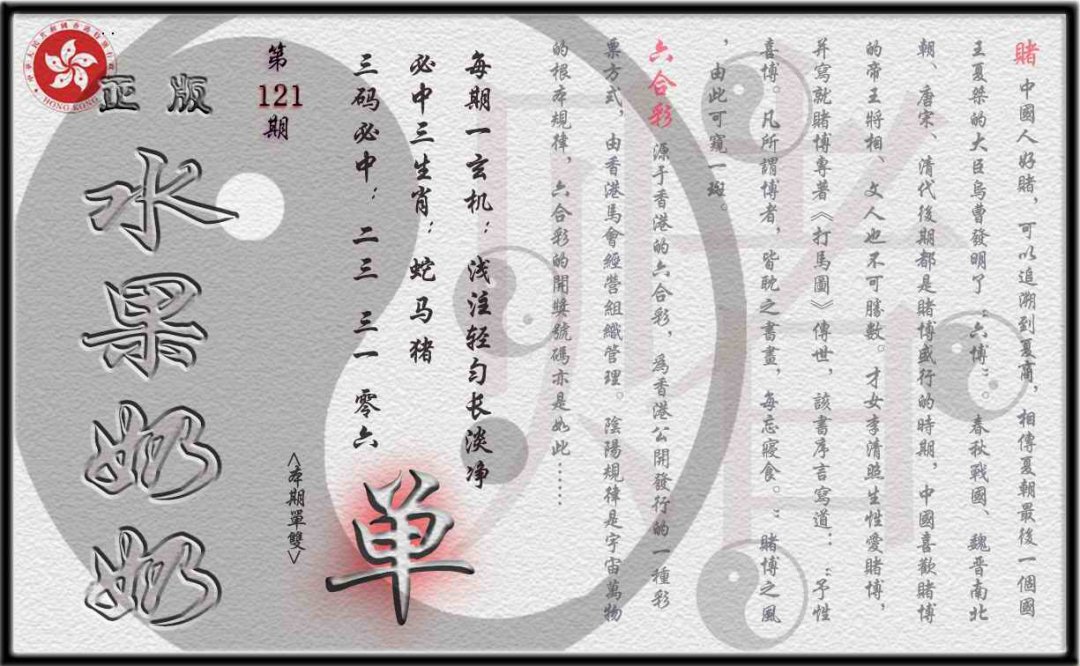 賭 中國人好賭，可以追溯到夏商，相傳夏朝最後一個國
王夏桀的大臣烏曹發明了“六博”。春秋戰國、魏晉南北
朝、唐宋、清代後期都是賭博盛行的時期，中國喜歡賭博
的帝王將相、文人也不可勝數。才女李清照生性愛賭博，
并寫就賭博專著《打馬圖》傳世，該書序言寫道：“予性
喜博。凡所謂博者，皆耽之書畫，每忘寢食。”賭博之風
，由此可窺一斑。
六合彩 源于香港的六合彩，為香港公開發行的一種彩
票方式，由香港馬會經營組織管理。陰陽規律是宇宙萬物
的根本規律，六合彩的開獎號碼亦是如此……
每期一玄机：浅注轻匀长淡净
必中三生肖：蛇马猪
三码必中：二三 三一 零六
单
<本期單雙>
第
121
期
正版
水果奶奶
HONG KONG